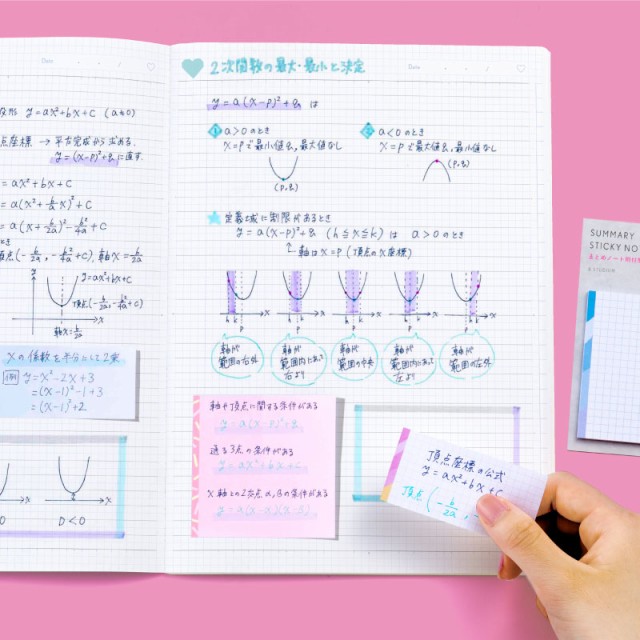 Date
形 y=ax²+bx+c (a≠0)
点座標 → 平方完成から求める.
y=(x-p)²+q に直す.
=ax²+bx+c
=a(x²+b/a x)²+c
=a(x+b/2a)²-b²/4a+c
とき
頂点(-b/2a, -b²/4a+c), 軸x=-b/2a
y
y=ax²+bx+c
頂点(-b/2a, -b²/4a+c)
x
軸x=-b/2a
xの係数を半分にして2乗
例 y=x²-2x+3
=(x-1)²-1+3
=(x-1)²+2
x
x
D<0
Date
2次関数の最大・最小と決定
y=a(x-p)²+q は
① a>0のとき
x=pで最小値q, 最大値なし
(p,q)
② a<0のとき
x=pで最大値q, 最小値なし
(p,q)
定義域に制限があるとき
y=a(x-p)²+q (h≦x≦k) は a>0のとき
↑軸はx=p (頂点のx座標)
h k p x
h k p x
h p k x
h p k x
p h k x
軸が範囲の右外
軸が範囲内にあって右より
軸が範囲の中央
軸が範囲内にあって左より
軸が範囲の左外
軸や頂点に関する条件がある
y=a(x-p)²+q
通る3点の条件がある
y=ax²+bx+c
x軸との2交点α,βの条件がある
y=a(x-α)(x-β)
頂点座標の公式
y=ax²+bx+c
頂点(-b/2a,
SUMMARY
STICKY NO
まとめノート用付